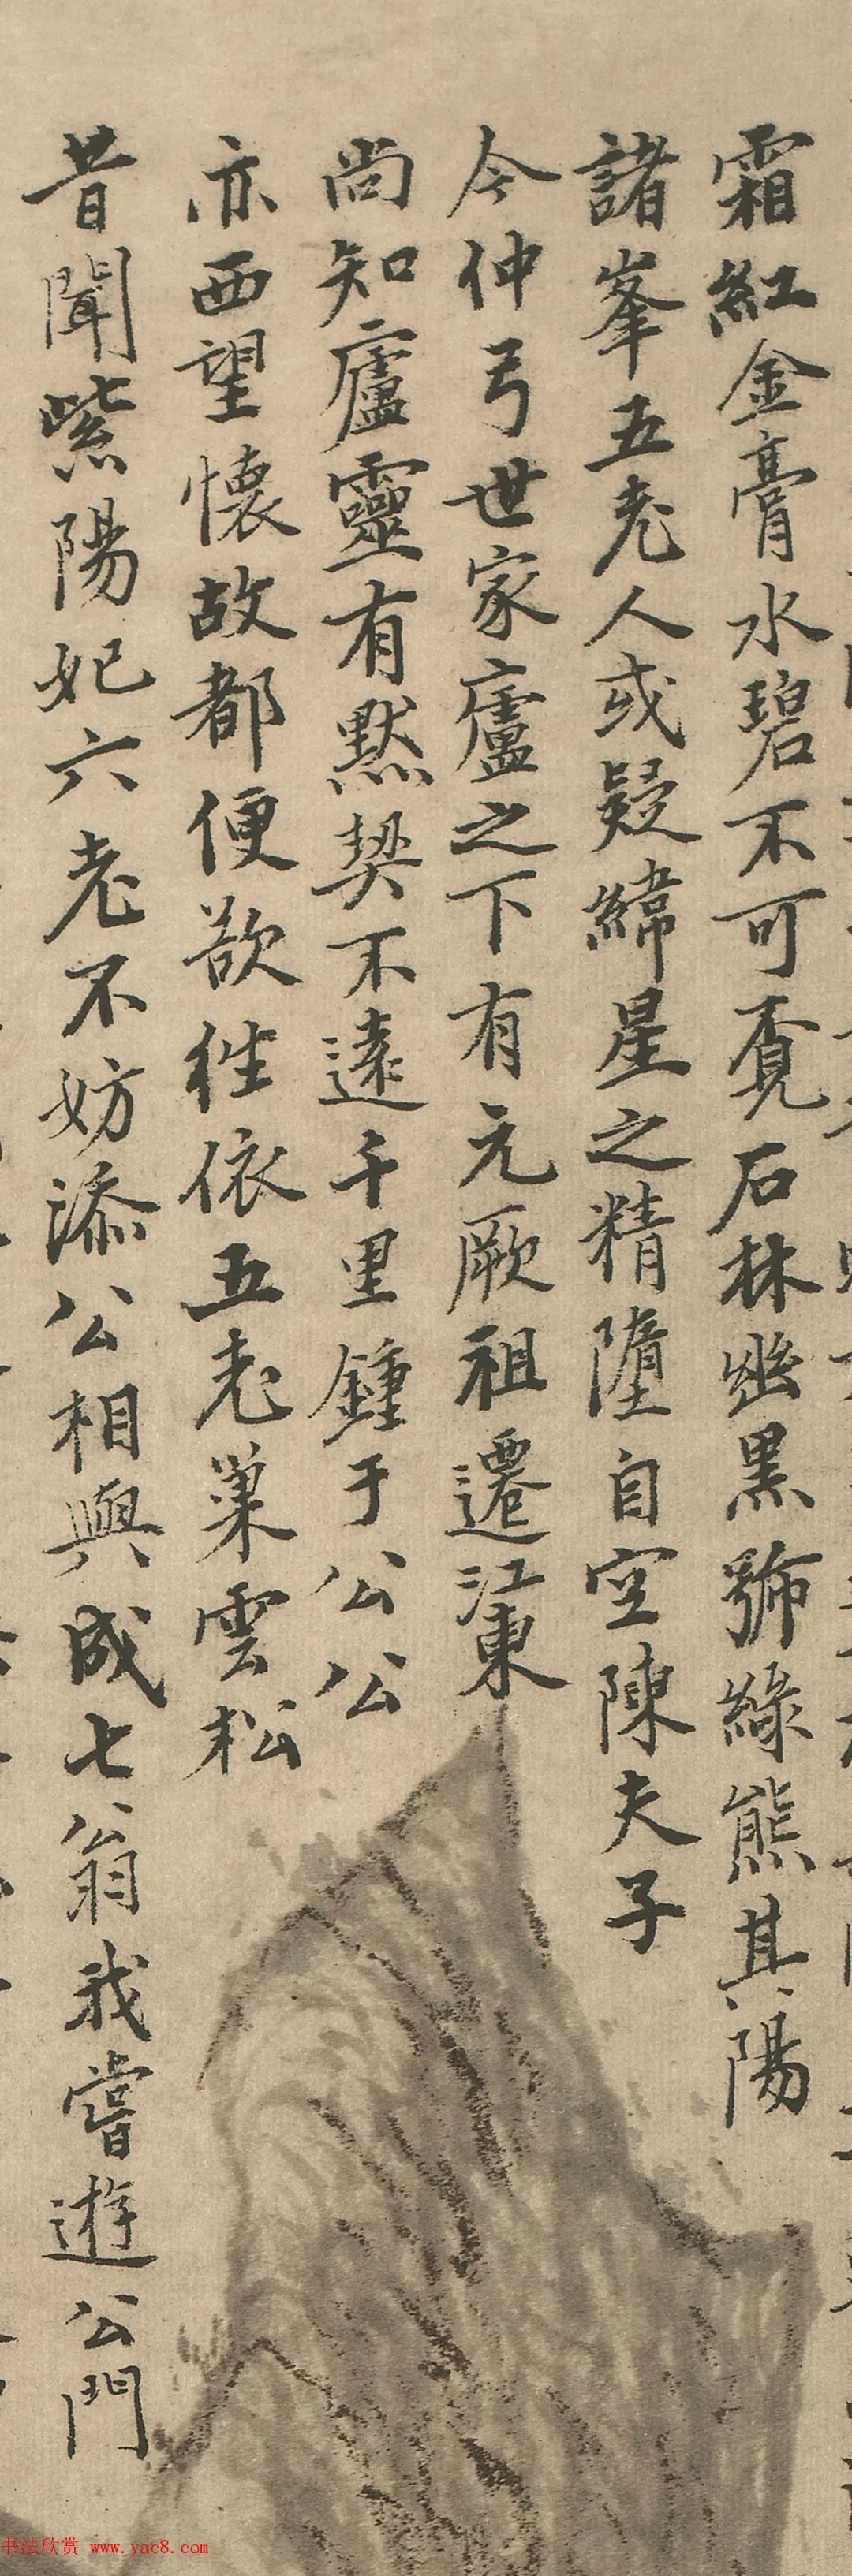 霜紅金膏水碧不可覔石林幽黑號綠熊其陽
諸峯五老人或疑緯星之精墮自空陳夫子
今仲弓世家廬之下有元厥祖遷江東
尚知廬靈有默契不遠千里鍾于公公
亦西望懷故都便欲徃依五老巢雲松
昔聞紫陽妃六老不妨添公相與成七翁我嘗遊公門
书法欣赏 www.yac8.com